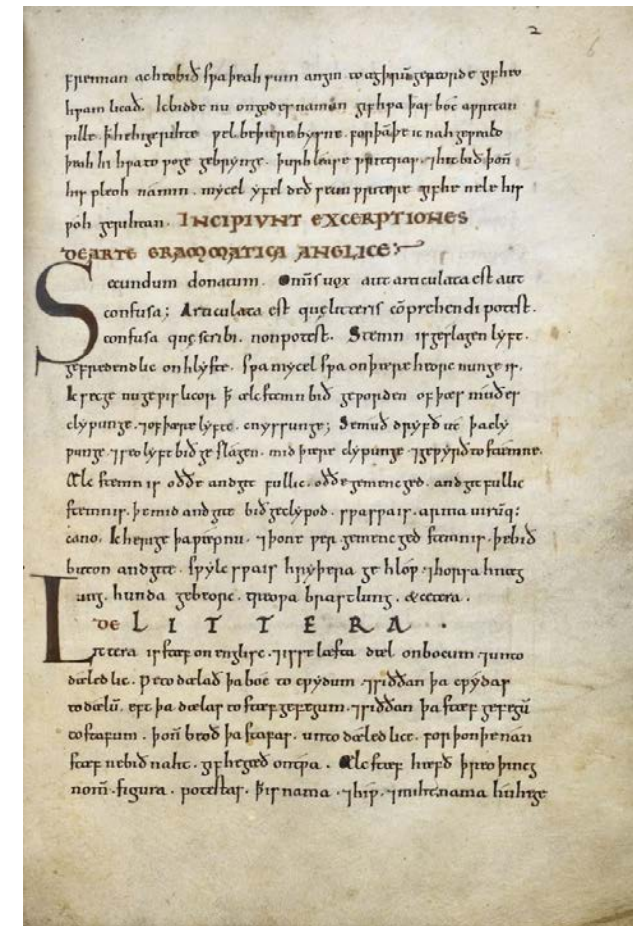 2
fremman ac he bið sƿa þeah sum angin to ægþrū gereorde gif he
hƿam licað. Ic bidde nu on godes namon gif hƿa þas bóc aƿritan
ƿille. ꝥ he hi gerihte ƿel be þære bysne. forþāþe ic nah geƿeald
þeah hi hƿa to ƿoge gebrynge. þurh léase ƿriteras. ⁊ hit bið þoñ
his pleoh na min. mycel yfel deð se unƿritere gif he nele his
ƿoh gerihtan. INCIPIVNT EXCERPTIONES
DE ARTE GRAMMATICA ANGLICE:
Secundum donatum. Om̄is uox aut articulata est aut
confusa; Articulata est quę litteris cōprehendi potest.
confusa quę scribi. non potest. Stemn is geslagen lyft.
gefredendlic on hlyste. sƿa mycel sƿa on þære heorcnunge is.
Ic secge nu geƿislicor ꝥ ælc stemn bið geƿorden of þæs muðes
clypunge. ⁊ of þære lyfte. cnyssunge; Se muð drýfð út þa cly
punge. ⁊ seo lyft bið geslagen. mid þære clypunge. ⁊ geƿyrð to stæmne.
Ælc stemn is oððe andget fullic. oððe gemencged. andget fullic
stemn is. þe mid andgite bið geclypod. sƿa sƿa is. arma uirūq:
cano. Ic herige þa ƿæpnu. ⁊ þone ƿer. gemencged stemn is. þe bið
buton andgite. sƿylc sƿa is hryþera gehlóƿ. ⁊ horsa hnæg
ung. hunda gebeorc. treoƿa brastlung. & cetera.
DE LITTERA.
Littera is stæf on englisc. ⁊ is se læsta dæl on bocum. ⁊ unto
dæledlic. ƿe todælað þa boc to cƿydum. ⁊ siððan þa cƿydas
to dælū. eft þa dælas to stæfgefegum. ⁊ siððan þa stæfgefegū
to stafum. þoñ beoð þa stafas. untodæledlice. for þon þe nan
stæf ne bið naht. gif he gæð on tƿa. Ælc stæf hæfð þreo þincg
nom̄. figura. potestas. ꝥ is nama. ⁊ hiƿ. ⁊ miht. nama hu he ge